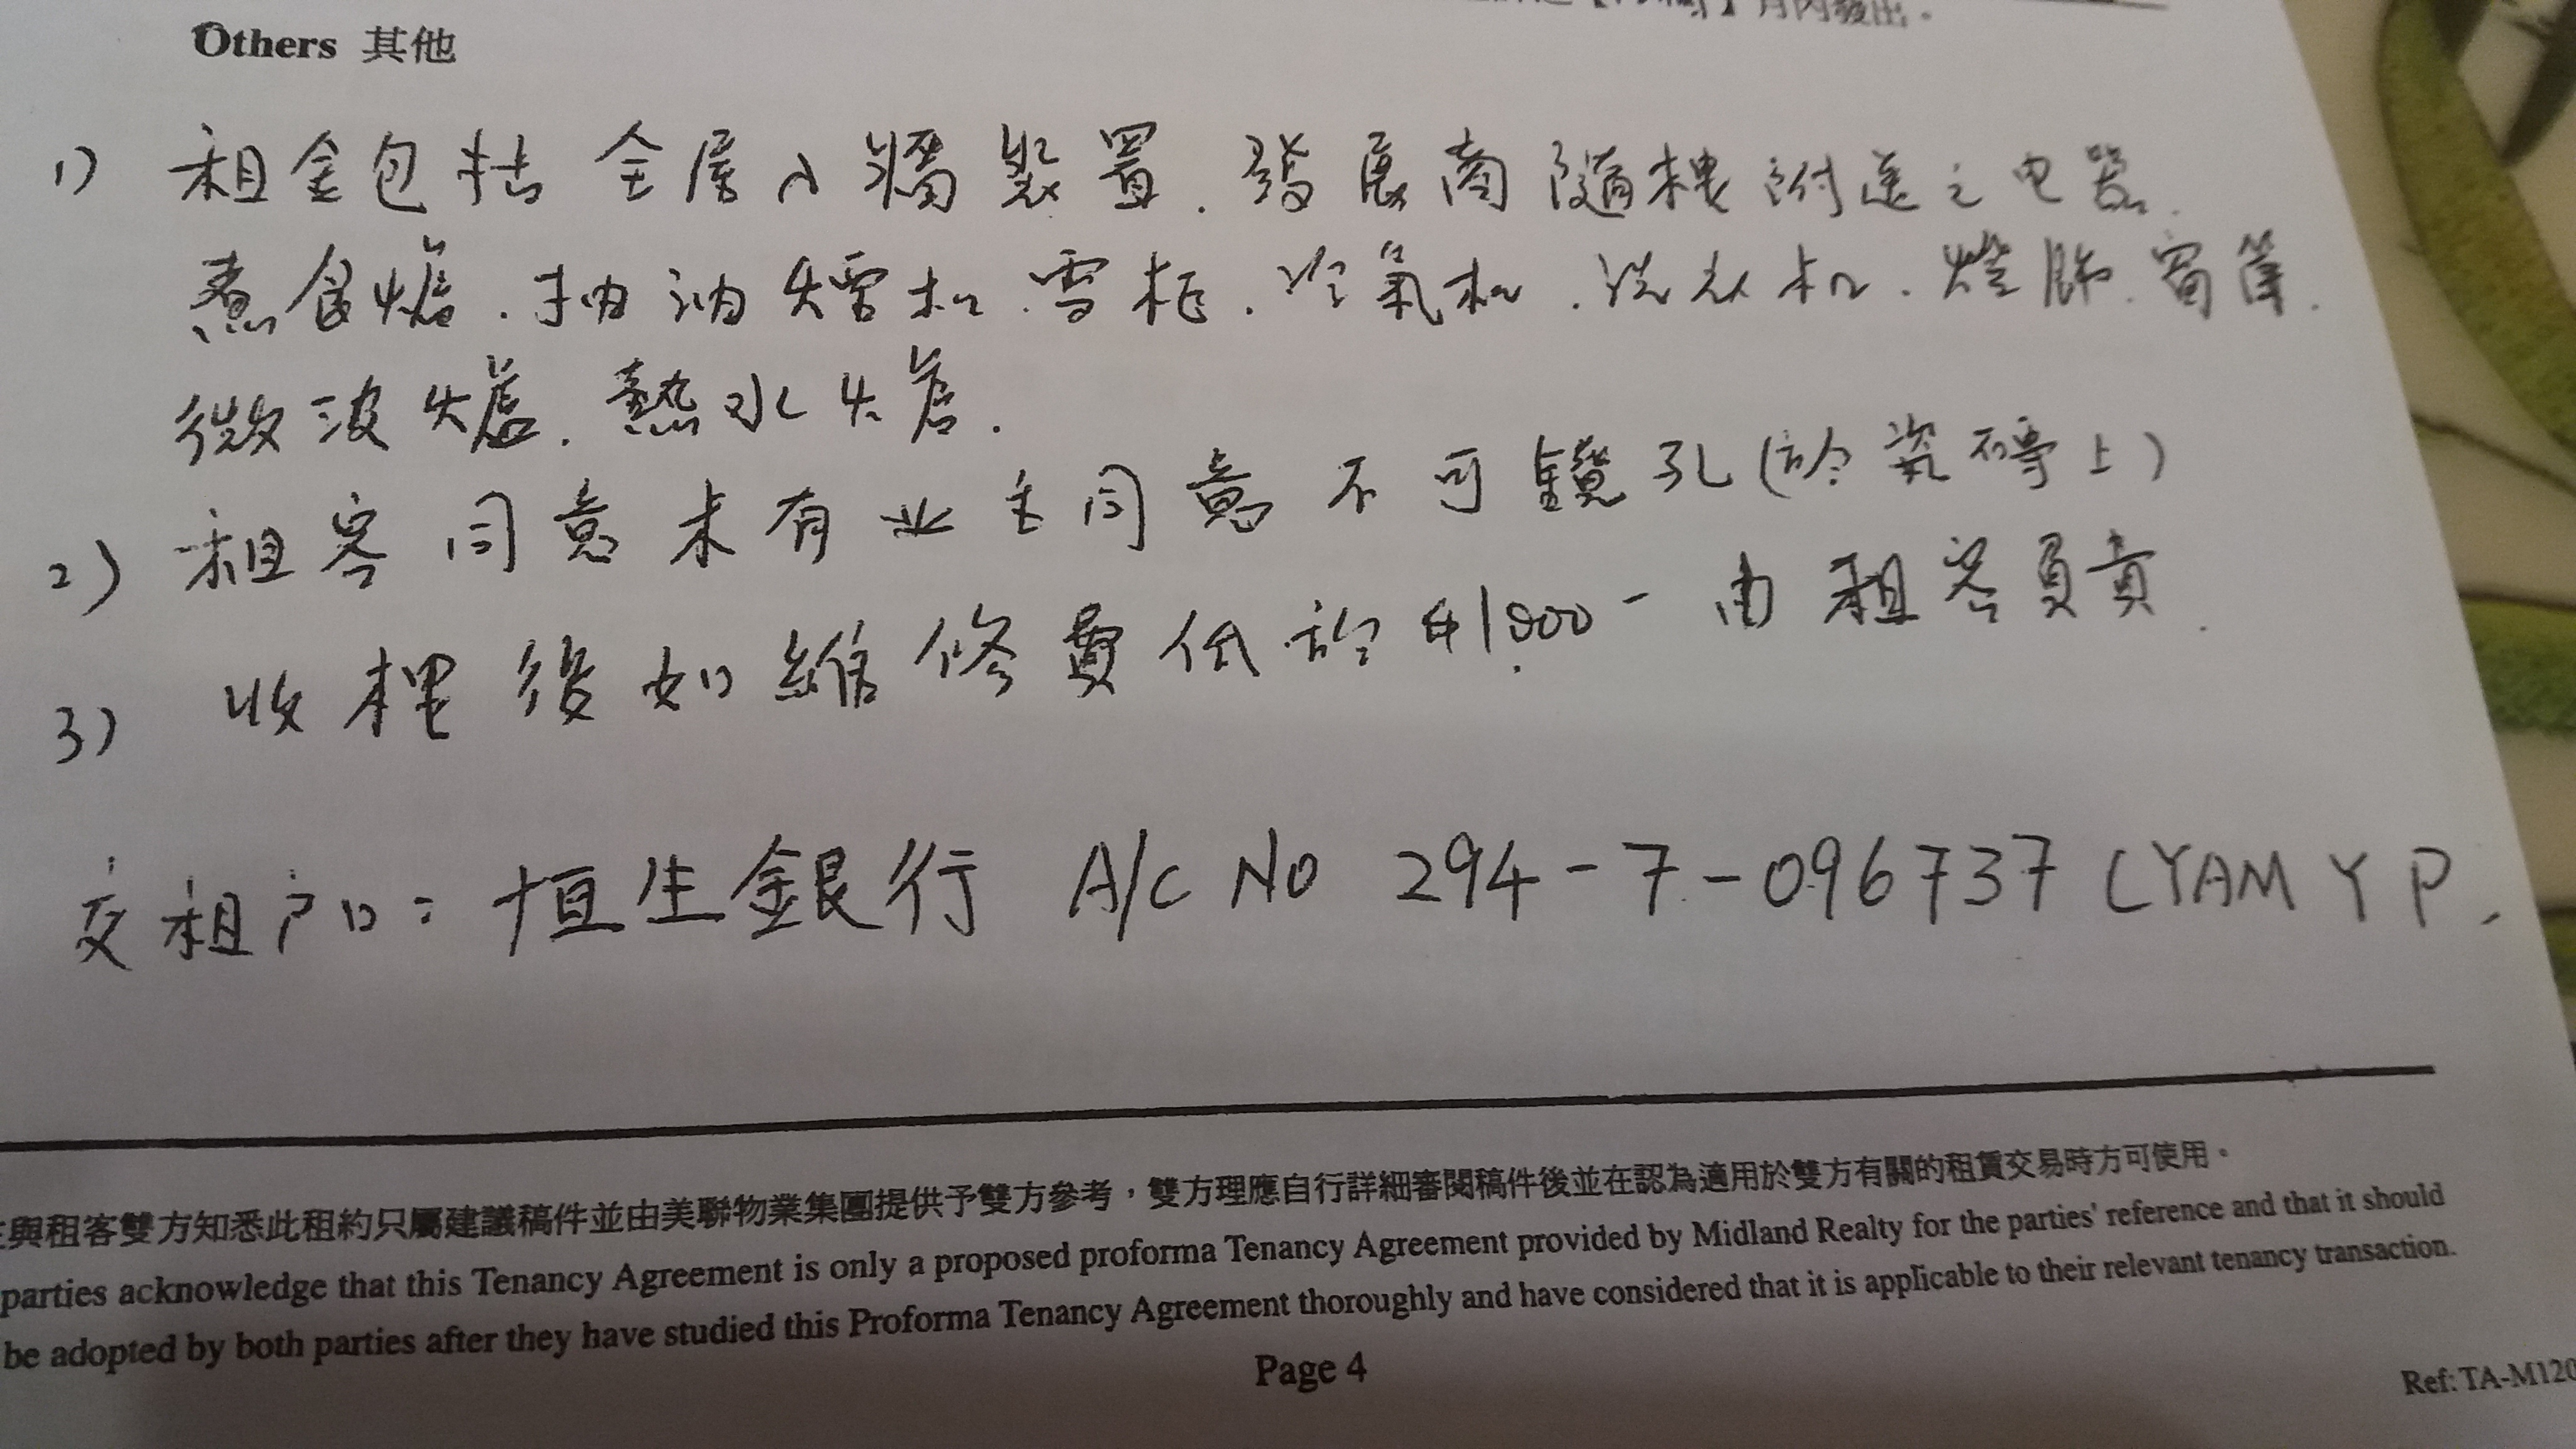 月內發出。
Others 其他
1) 租金包括全屋入牆裝置.發展商隨樓附送之电器.
煮食爐.抽油煙机.雪柜.冷氣机.洗衣机.燈飾.窗簾.
微波爐.熱水爐.
2) 租客同意未有业主同意不可鑽孔(於瓷磚上)
3) 收樓後如維修費低於$1000- 由租客負責.
交租户口: 恒生銀行 A/C NO 294-7-096737 LYAM Y P.
與租客雙方知悉此租約只屬建議稿件並由美聯物業集團提供予雙方參考，雙方理應自行詳細審閱稿件後並在認為適用於雙方有關的租賃交易時方可使用。
parties acknowledge that this Tenancy Agreement is only a proposed proforma Tenancy Agreement provided by Midland Realty for the parties' reference and that it should
be adopted by both parties after they have studied this Proforma Tenancy Agreement thoroughly and have considered that it is applicable to their relevant tenancy transaction.
Page 4
Ref: TA-M120